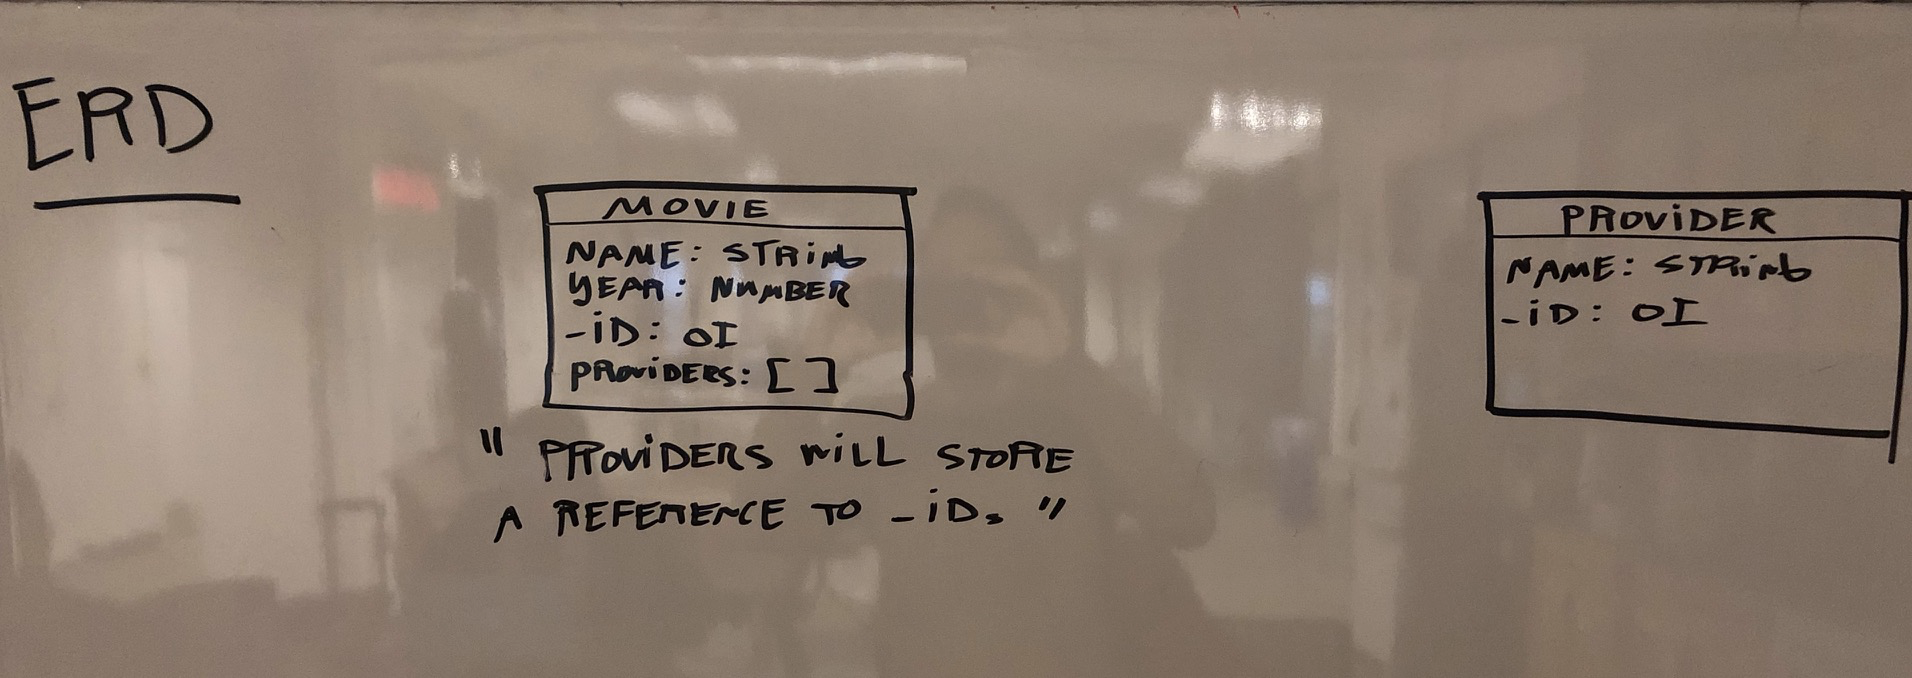 ERD
MOVIE
NAME: STRING
YEAR: NUMBER
_iD: OI
PROViDERS: [ ]
" PROViDERS WiLL STORE
A REFERENCE TO _iDs "
PROViDER
NAME: STRiNG
_iD: OI